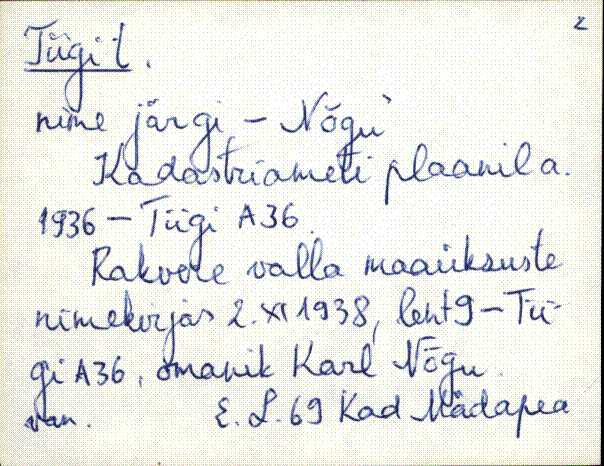 2
Tiigi t.
nime järgi – Nõgu
Kadastriameti plaanil a.
1936 – Tiigi A36.
Rakvere valla maaüksuste
nimekirjas 2. XI 1938, leht 9 – Tii-
gi A36, omanik Karl Nõgu.
van. E. L. 69 Kad Mädapea